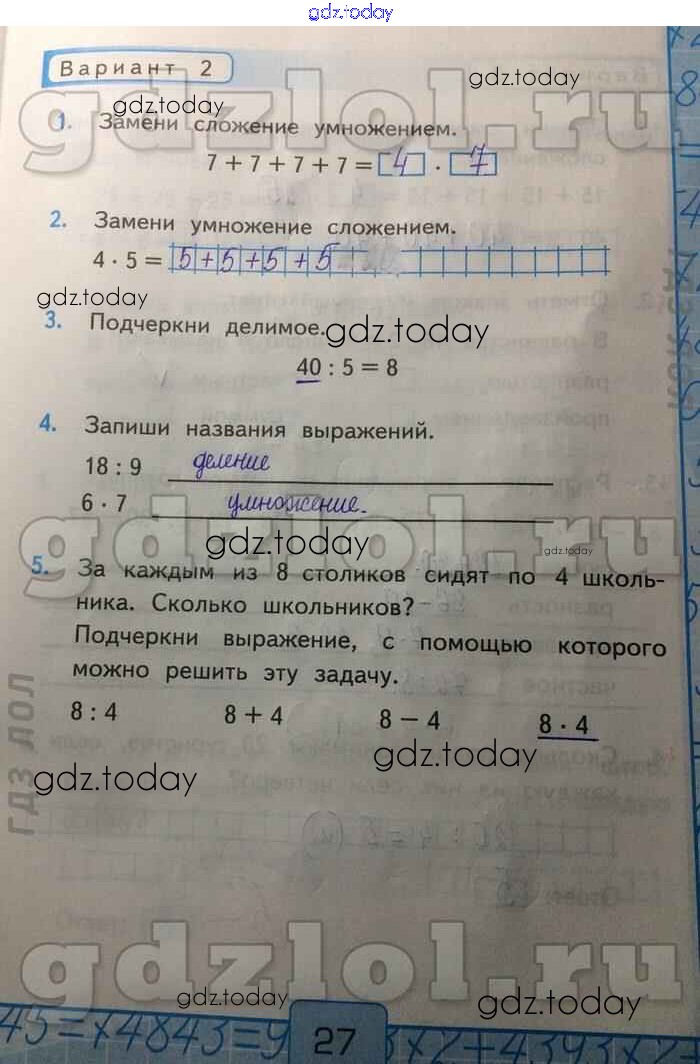 gdz.today
Вариант 2
gdz.today
gdz.today
gdzlol.ru
1. Замени сложение умножением.
7 + 7 + 7 + 7 = 4 · 7
2. Замени умножение сложением.
4 · 5 = 5+5+5+5
gdz.today
3. Подчеркни делимое.
gdz.today
40 : 5 = 8
4. Запиши названия выражений.
18 : 9 деление
6 · 7 умножение.
gdzlol.ru
gdz.today
gdz.today
5. За каждым из 8 столиков сидят по 4 школь-
ника. Сколько школьников?
Подчеркни выражение, с помощью которого
можно решить эту задачу.
8 : 4 8 + 4 8 − 4 8 · 4
ГДЗ ЛОЛ
gdz.today
gdz.today
gdzlol.ru
gdz.today
gdz.today
27